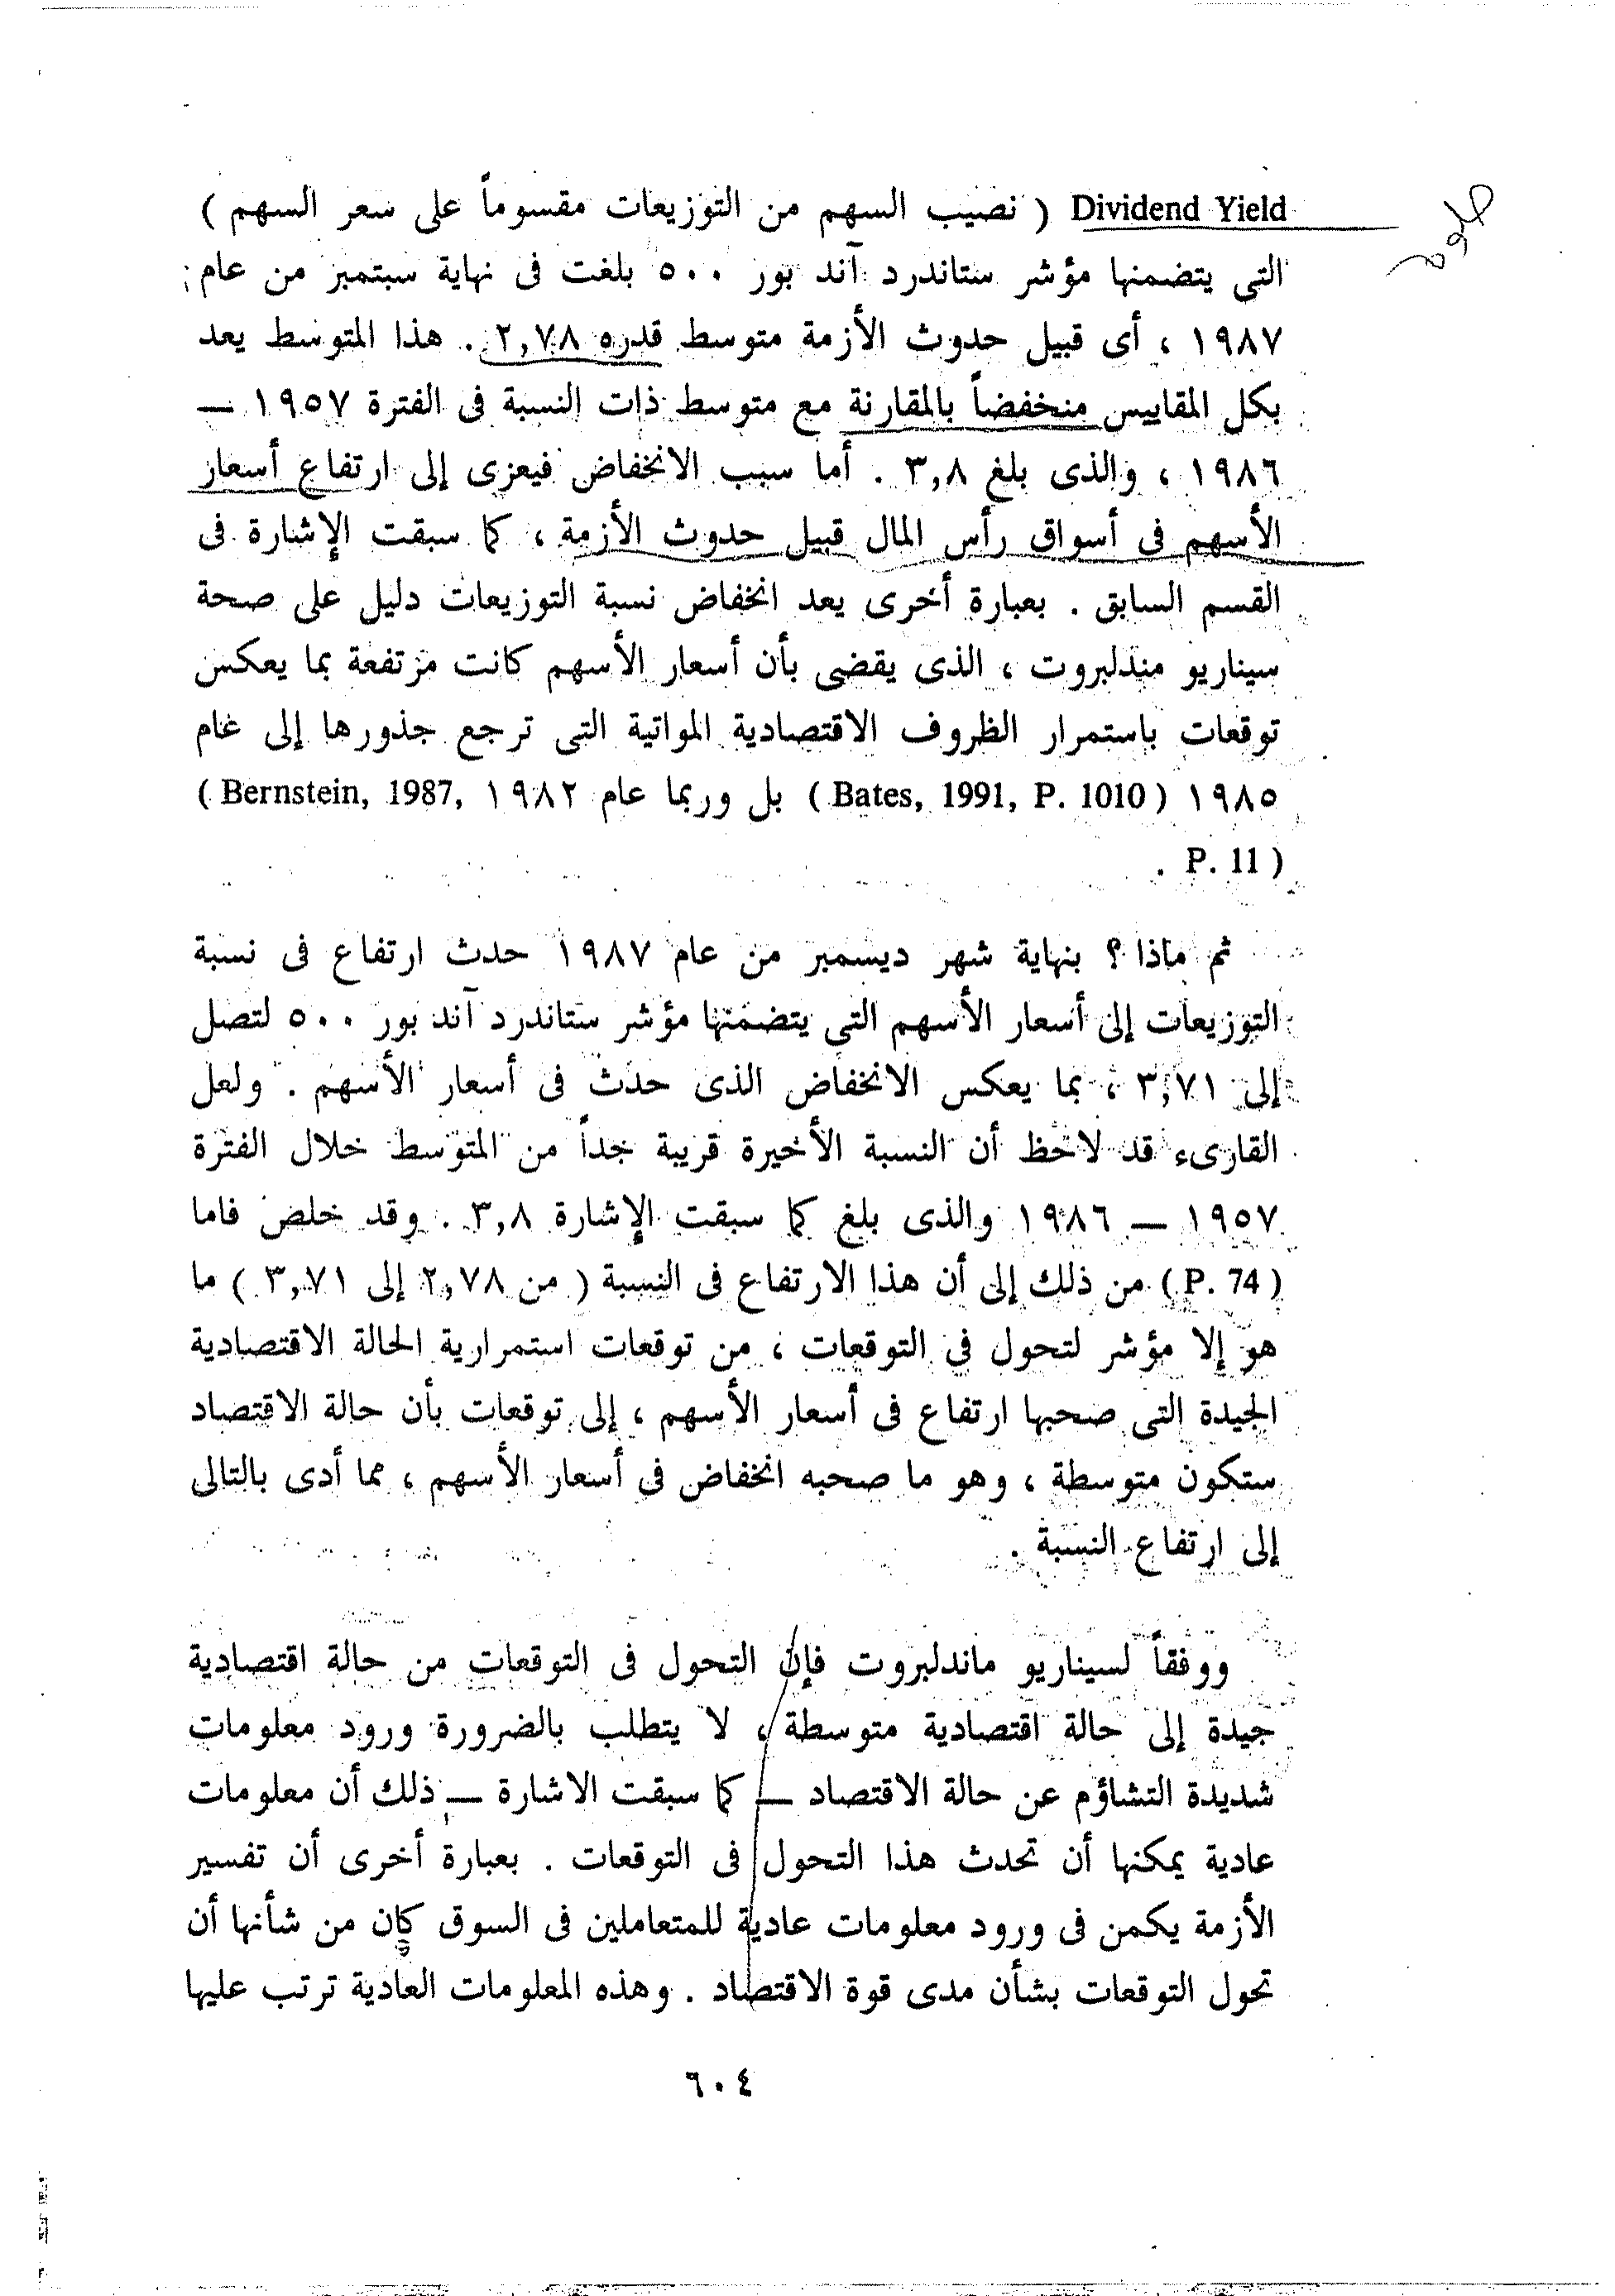 Dividend Yield ( نصيب السهم من التوزيعات مقسوماً على سعر السهم )
التى يتضمنها مؤشر ستاندرد آند بور ٥٠٠ بلغت فى نهاية سبتمبر من عام
١٩٨٧ ، أى قبيل حدوث الأزمة متوسط قدره ٢,٧٨ . هذا المتوسط يعد
بكل المقاييس منخفضاً بالمقارنة مع متوسط ذات النسبة فى الفترة ١٩٥٧ —
١٩٨٦ ، والذى بلغ ٣,٨ . أما سبب الانخفاض فيعزى إلى ارتفاع أسعار
الأسهم فى أسواق رأس المال قبيل حدوث الأزمة ، كما سبقت الإشارة فى
القسم السابق . بعبارة أخرى يعد انخفاض نسبة التوزيعات دليل على صحة
سيناريو مندلبروت ، الذى يقضى بأن أسعار الأسهم كانت مرتفعة بما يعكس
توقعات باستمرار الظروف الاقتصادية المواتية التى ترجع جذورها إلى عام
١٩٨٥ ( Bates, 1991, P. 1010 ) بل وربما عام ١٩٨٢ ( Bernstein, 1987,
P. 11 ) .
ثم ماذا ؟ بنهاية شهر ديسمبر من عام ١٩٨٧ حدث ارتفاع فى نسبة
التوزيعات إلى أسعار الأسهم التى يتضمنها مؤشر ستاندرد آند بور ٥٠٠ لتصل
إلى ٣,٧١ ، بما يعكس الانخفاض الذى حدث فى أسعار الأسهم . ولعل
القارىء قد لاحظ أن النسبة الأخيرة قريبة جداً من المتوسط خلال الفترة
١٩٥٧ — ١٩٨٦ والذى بلغ كما سبقت الإشارة ٣,٨ . وقد خلص فاما
( P. 74 ) من ذلك إلى أن هذا الارتفاع فى النسبة ( من ٢,٧٨ إلى ٣,٧١ ) ما
هو إلا مؤشر لتحول فى التوقعات ، من توقعات استمرارية الحالة الاقتصادية
الجيدة التى صحبها ارتفاع فى أسعار الأسهم ، إلى توقعات بأن حالة الاقتصاد
ستكون متوسطة ، وهو ما صحبه انخفاض فى أسعار الأسهم ، مما أدى بالتالى
إلى ارتفاع النسبة .
ووفقاً لسيناريو ماندلبروت فإن التحول فى التوقعات من حالة اقتصادية
جيدة إلى حالة اقتصادية متوسطة ، لا يتطلب بالضرورة ورود معلومات
شديدة التشاؤم عن حالة الاقتصاد — كما سبقت الاشارة — ذلك أن معلومات
عادية يمكنها أن تحدث هذا التحول فى التوقعات . بعبارة أخرى أن تفسير
الأزمة يكمن فى ورود معلومات عادية للمتعاملين فى السوق كان من شأنها أن
تحول التوقعات بشأن مدى قوة الاقتصاد . وهذه المعلومات العادية ترتب عليها
٦٠٤